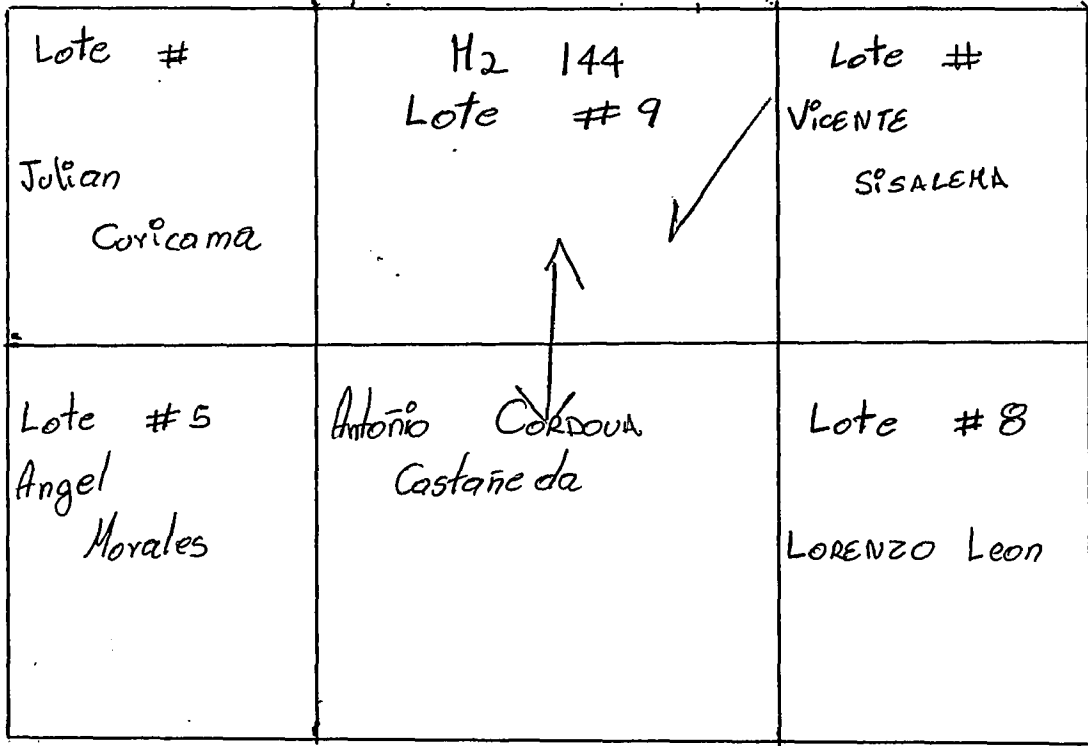 Lote #
Julian
Curicama
H2 144
Lote # 9
Lote #
VICENTE
SISALEMA
Lote # 5
Angel
Morales
Antonio CORDOVA
Castañeda
Lote # 8
LORENZO Leon